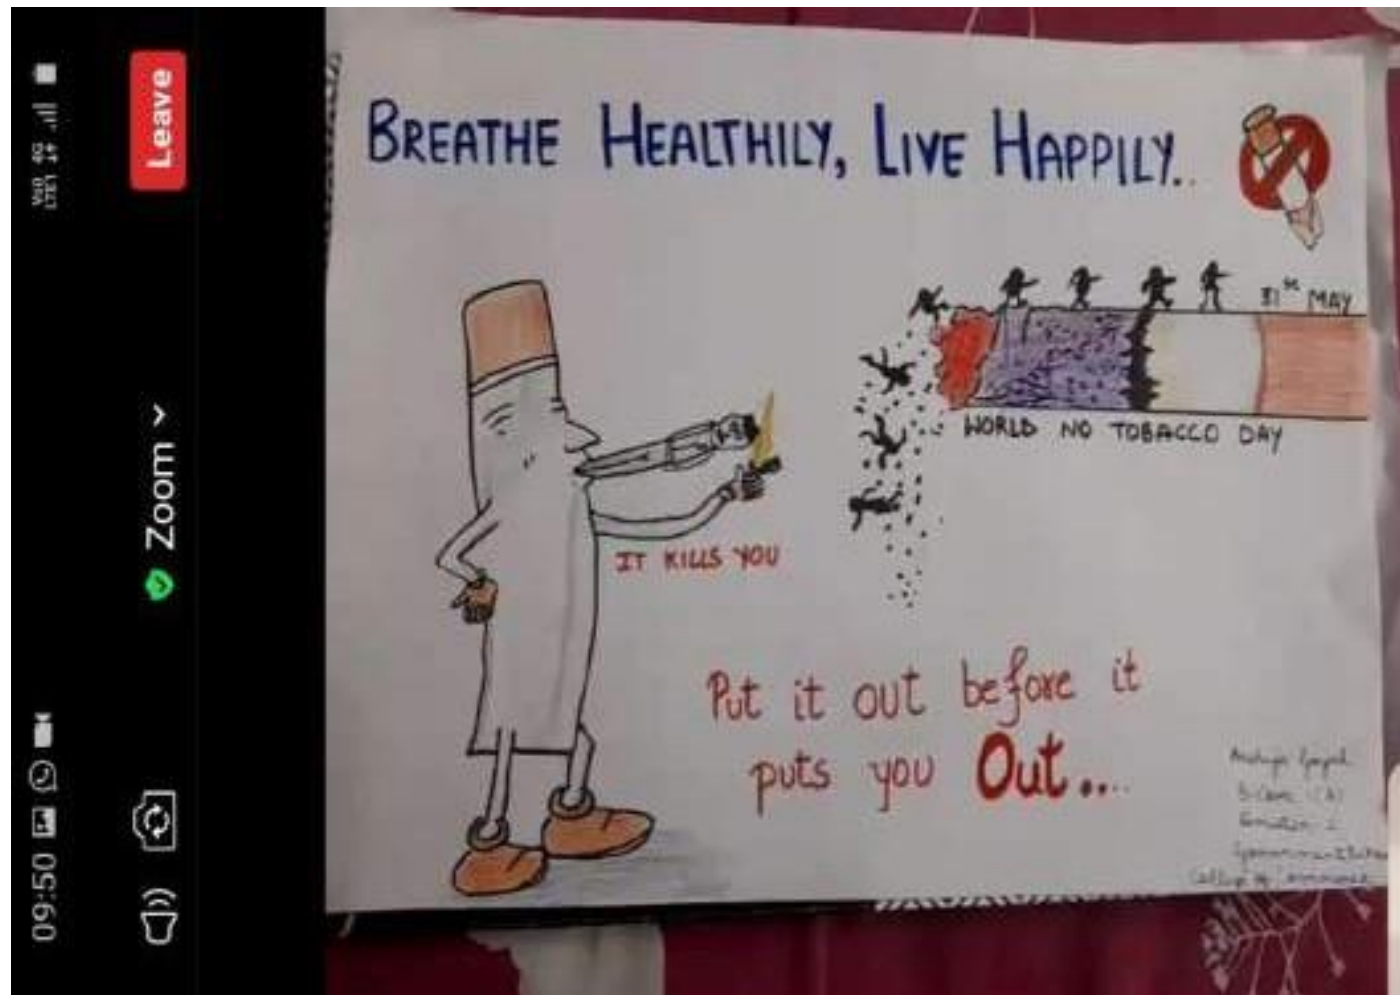 09:50
Vo) 4G
LTE1
Zoom
Leave
BREATHE HEALTHILY, LIVE HAPPILY..
31st MAY
WORLD NO TOBACCO DAY
IT KILLS YOU
Put it out before it
puts you Out....